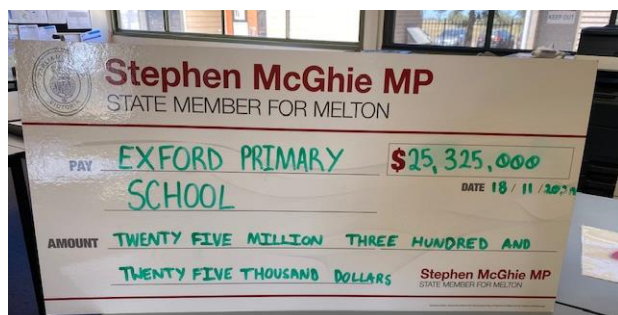 KEEP OUT
Stephen McGhie MP
STATE MEMBER FOR MELTON
PAY EXFORD PRIMARY $25,325,000
SCHOOL
DATE 18 / 11 /
AMOUNT TWENTY FIVE MILLION THREE HUNDRED AND
TWENTY FIVE THOUSAND DOLLARS
Stephen McGhie MP
STATE MEMBER FOR MELTON